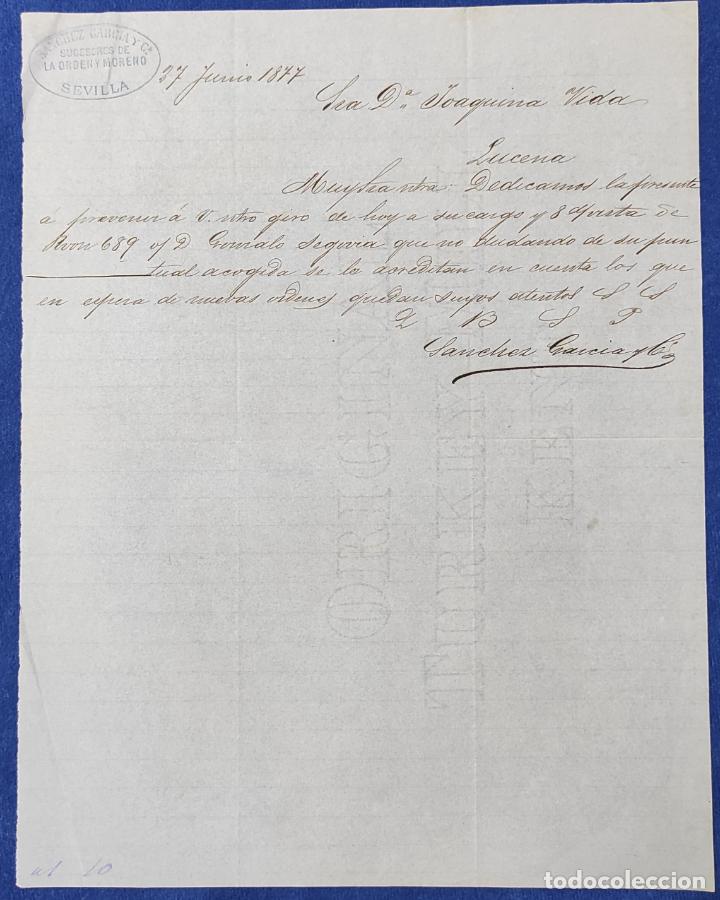 SANCHEZ GARCIA Y Cª
SUCESORES DE
LA ORDEN Y MORENO
SEVILLA
27 Junio 1877
Sra Dª Joaquina Vida
Lucena
Muy Sra ntra: Dedicamos la presente
a prevenir á V. ntro giro de hoy a su cargo y 8 d/vista de
Rvon 689 o/ D. Gonzalo Segovia que no dudando de su pun
tual acogida se lo acreditan en cuenta los que
en espera de nuevas ordenes quedan suyos atentos S S
Q B S P
Sanchez Garcia y Cª
ORIGINAL
TURKEY MILL
KENT
10
todocoleccion.net